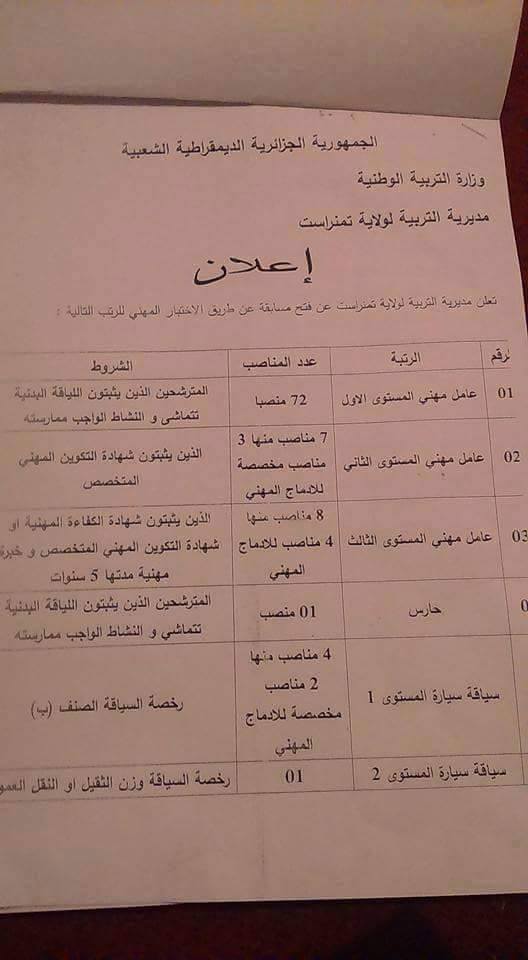 الجمهورية الجزائرية الديمقراطية الشعبية
وزارة التربية الوطنية
مديرية التربية لولاية تمنراست
إعلان
تعلن مديرية التربية لولاية تمنراست عن فتح مسابقة عن طريق الاختبار المهني للرتب التالية :
لرقم الرتبة عدد المناصب الشروط
01 عامل مهني المستوى الاول 72 منصبا المترشحين الذين يثبتون اللياقة البدنية
تتماشى و النشاط الواجب ممارسته
02 عامل مهني المستوى الثاني 7 مناصب منها 3
مناصب مخصصة
للادماج المهني
الذين يثبتون شهادة التكوين المهني
المتخصص
03 عامل مهني المستوى الثالث 8 مناصب منها
4 مناصب للادماج
المهني
الذين يثبتون شهادة الكفاءة المهنية او
شهادة التكوين المهني المتخصص و خبرة
مهنية مدتها 5 سنوات
0 حارس 01 منصب المترشحين الذين يثبتون اللياقة البدنية
تتماشي و النشاط الواجب ممارسته
سياقة سيارة المستوى 1 4 مناصب منها
2 مناصب
مخصصة للادماج
المهني
رخصة السياقة الصنف (ب)
سياقة سيارة المستوى 2 01 رخصة السياقة وزن الثقيل او النقل العمو